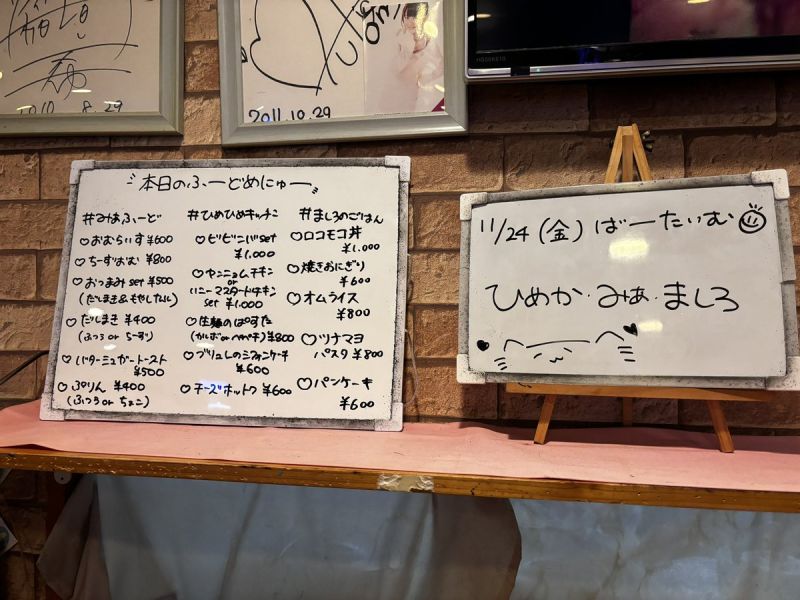 2011.10.29
本日のふーどめにゅー
#みあふーど
♡おむらいす ¥600
♡ちーずおむ ¥800
♡おつまみ set ¥500
(だしまき&もやしナムル)
♡だしまき ¥400
(ふつう or ちーず)
♡バターシュガートースト
¥500
♡ぷりん ¥400
(ふつう or ちょこ)
#ひめひめキッチン
♡ビビンバset
¥1.000
♡ヤンニョムチキン
or
ハニーマスタードチキン
set ¥1.000
♡生麺のぱすた
¥800
♡ブリュレのシフォンケーキ
¥600
♡チーズホットク ¥600
#ましろのごはん
♡ロコモコ丼
¥1.000
♡焼きおにぎり
¥600
♡オムライス
¥800
♡ツナマヨ
パスタ ¥800
♡パンケーキ
¥600
11/24 (金) ばーたいむ
ひめか・みぁ・ましろ